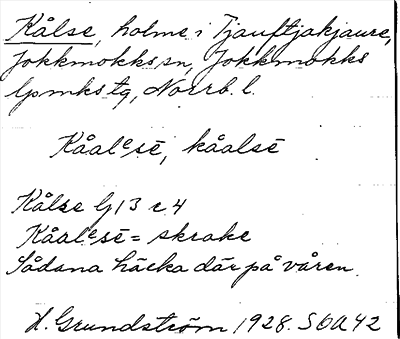 Kålse, holme i Tjauftjakjaure,
Jokkmokks sn, Jokkmokks
lpmks tg, Norrb. l.
Kåalᵉsē, kåalsē
Kålse G 13 c 4
Kåalᵉsē = skrake
Sådana häcka där på våren.
H. Grundström 1928. SOA 42